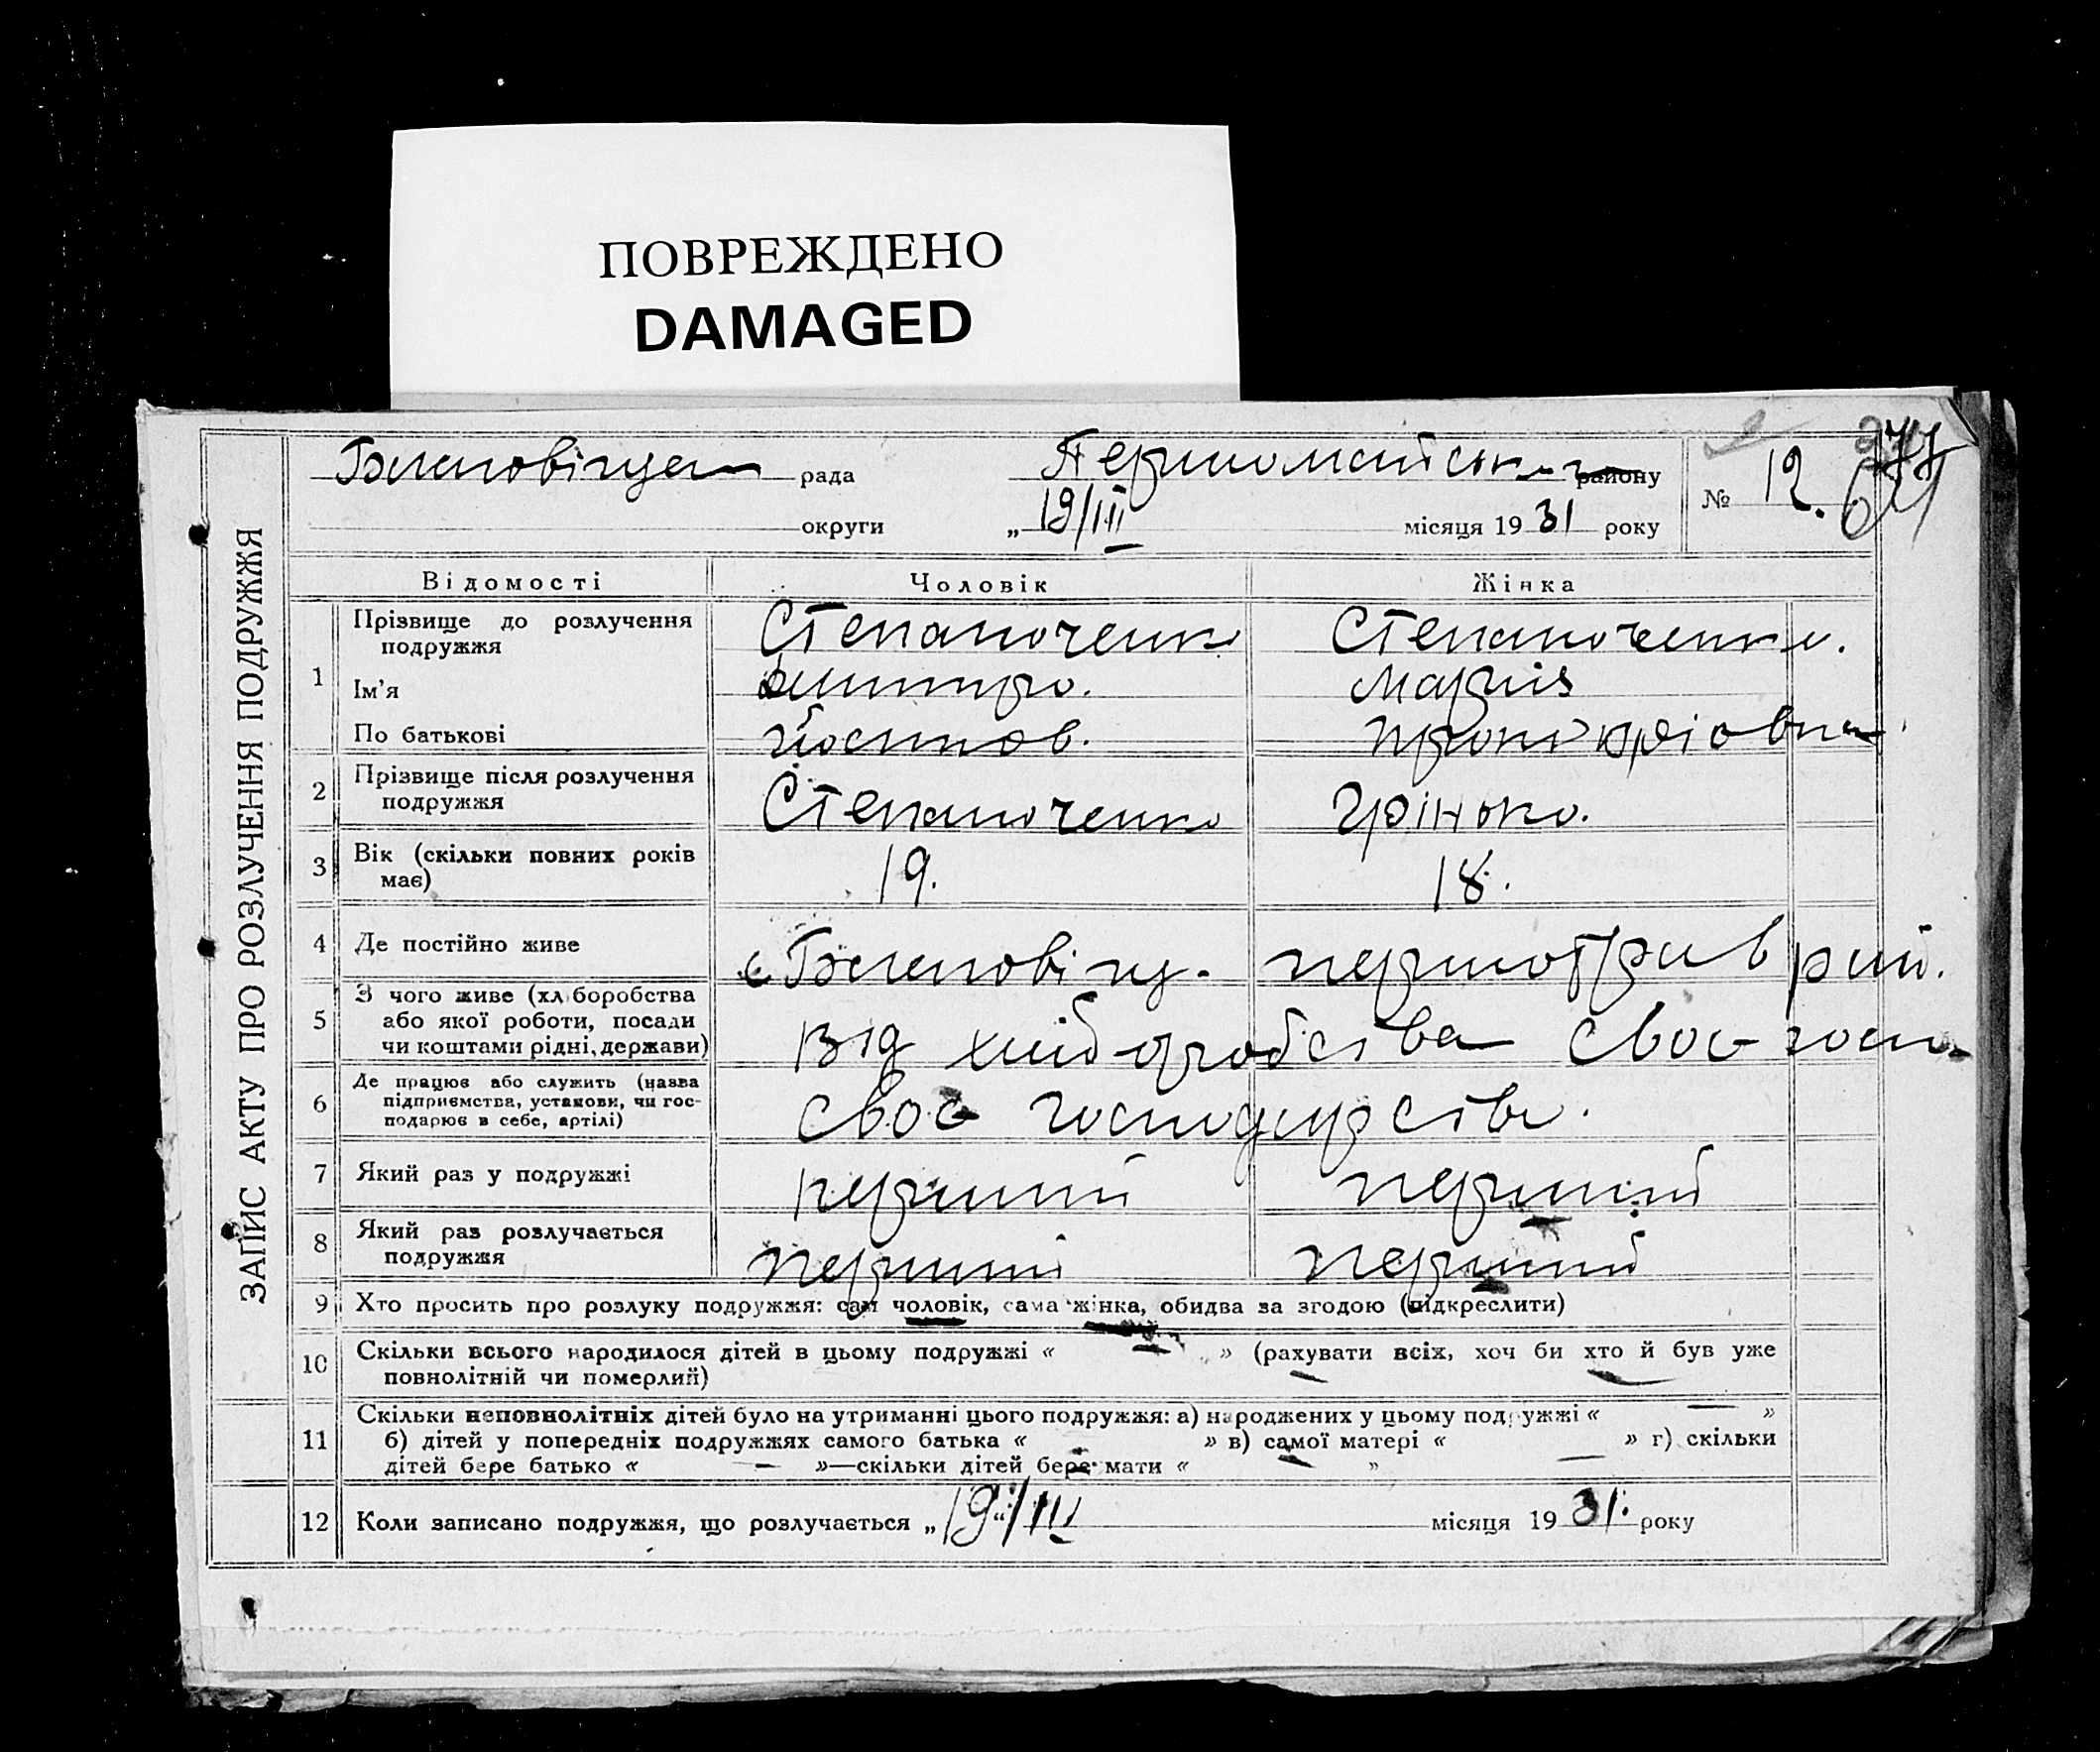 ПОВРЕЖДЕНО
DAMAGED
ЗАПИС АКТУ ПРО РОЗЛУЧЕННЯ ПОДРУЖЖЯ
рада району № 12.
округи „19/III місяця 1931 року
Відомості Чоловік Жінка
1 Прізвище до розлучення Степаноченко Степаноченко.
подружжя
Ім'я Дмитро. Марія
По батькові Йосипов.
2 Прізвище після розлучення Степаноченко Грінько.
подружжя
3 Вік (скільки повних років 19. 18.
має)
4 Де постійно живе рай.
5 З чого живе (хліборобства Від хліборобства своє госп.
або якої роботи, посади
чи коштами рідні, держави)
6 Де працює або служить (назва своє господарство.
підприємства, установи, чи гос-
подарює в себе, артілі)
7 Який раз у подружжі перший перший
8 Який раз розлучається перший перший
подружжя
9 Хто просить про розлуку подружжя: сам чоловік, сама жінка, обидва за згодою (підкреслити)
10 Скільки всього народилося дітей в цьому подружжі « — » (рахувати всіх, хоч би хто й був уже
повнолітній чи померлий)
11 Скільки неповнолітніх дітей було на утриманні цього подружжя: а) народжених у цьому подружжі « — »
б) дітей у попередніх подружжях самого батька « — » в) самої матері « — » г) скільки
дітей бере батько « — »—скільки дітей бере мати « — »
12 Коли записано подружжя, що розлучається „19“/III місяця 1931. року